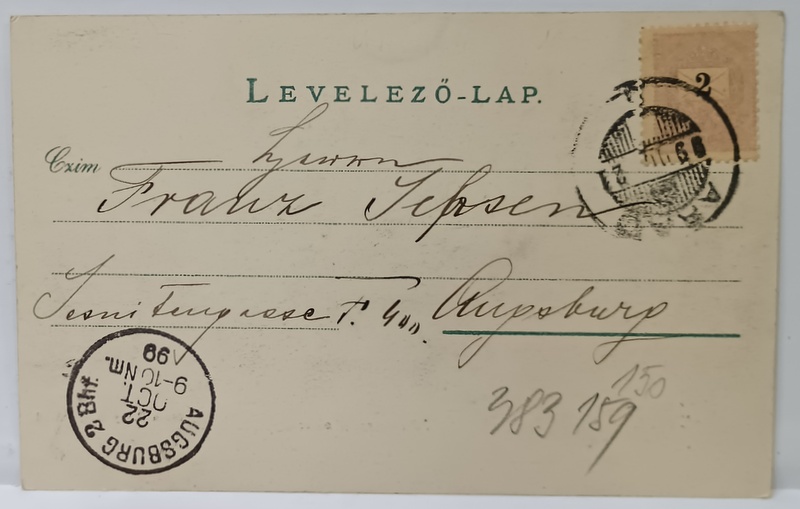 LEVELEZŐ-LAP.
2
Czim
Herrn
Franz
Jesuitengasse F. 411. Augsburg
AUGSBURG 2 Bhf.
22
OCT.
9-10 Nm.
99
383 159 150